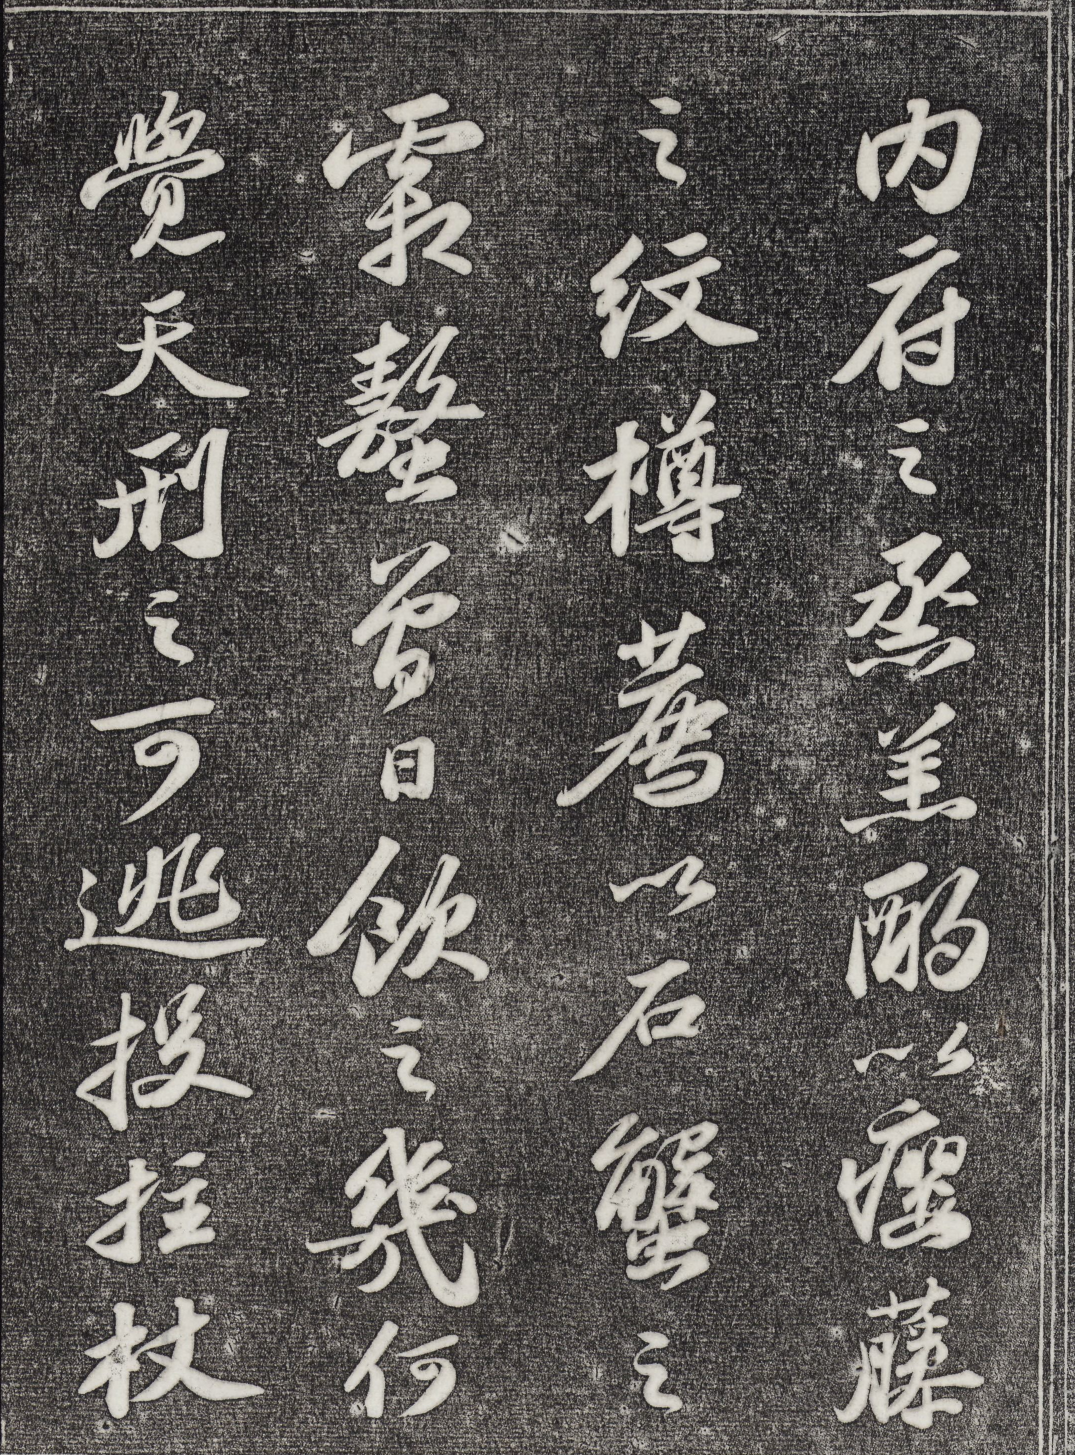 内府之烝羔酌以癭藤
之紋樽薦以石蟹之
霜螯曾日飲之幾何
覺天刑之可逃投拄杖